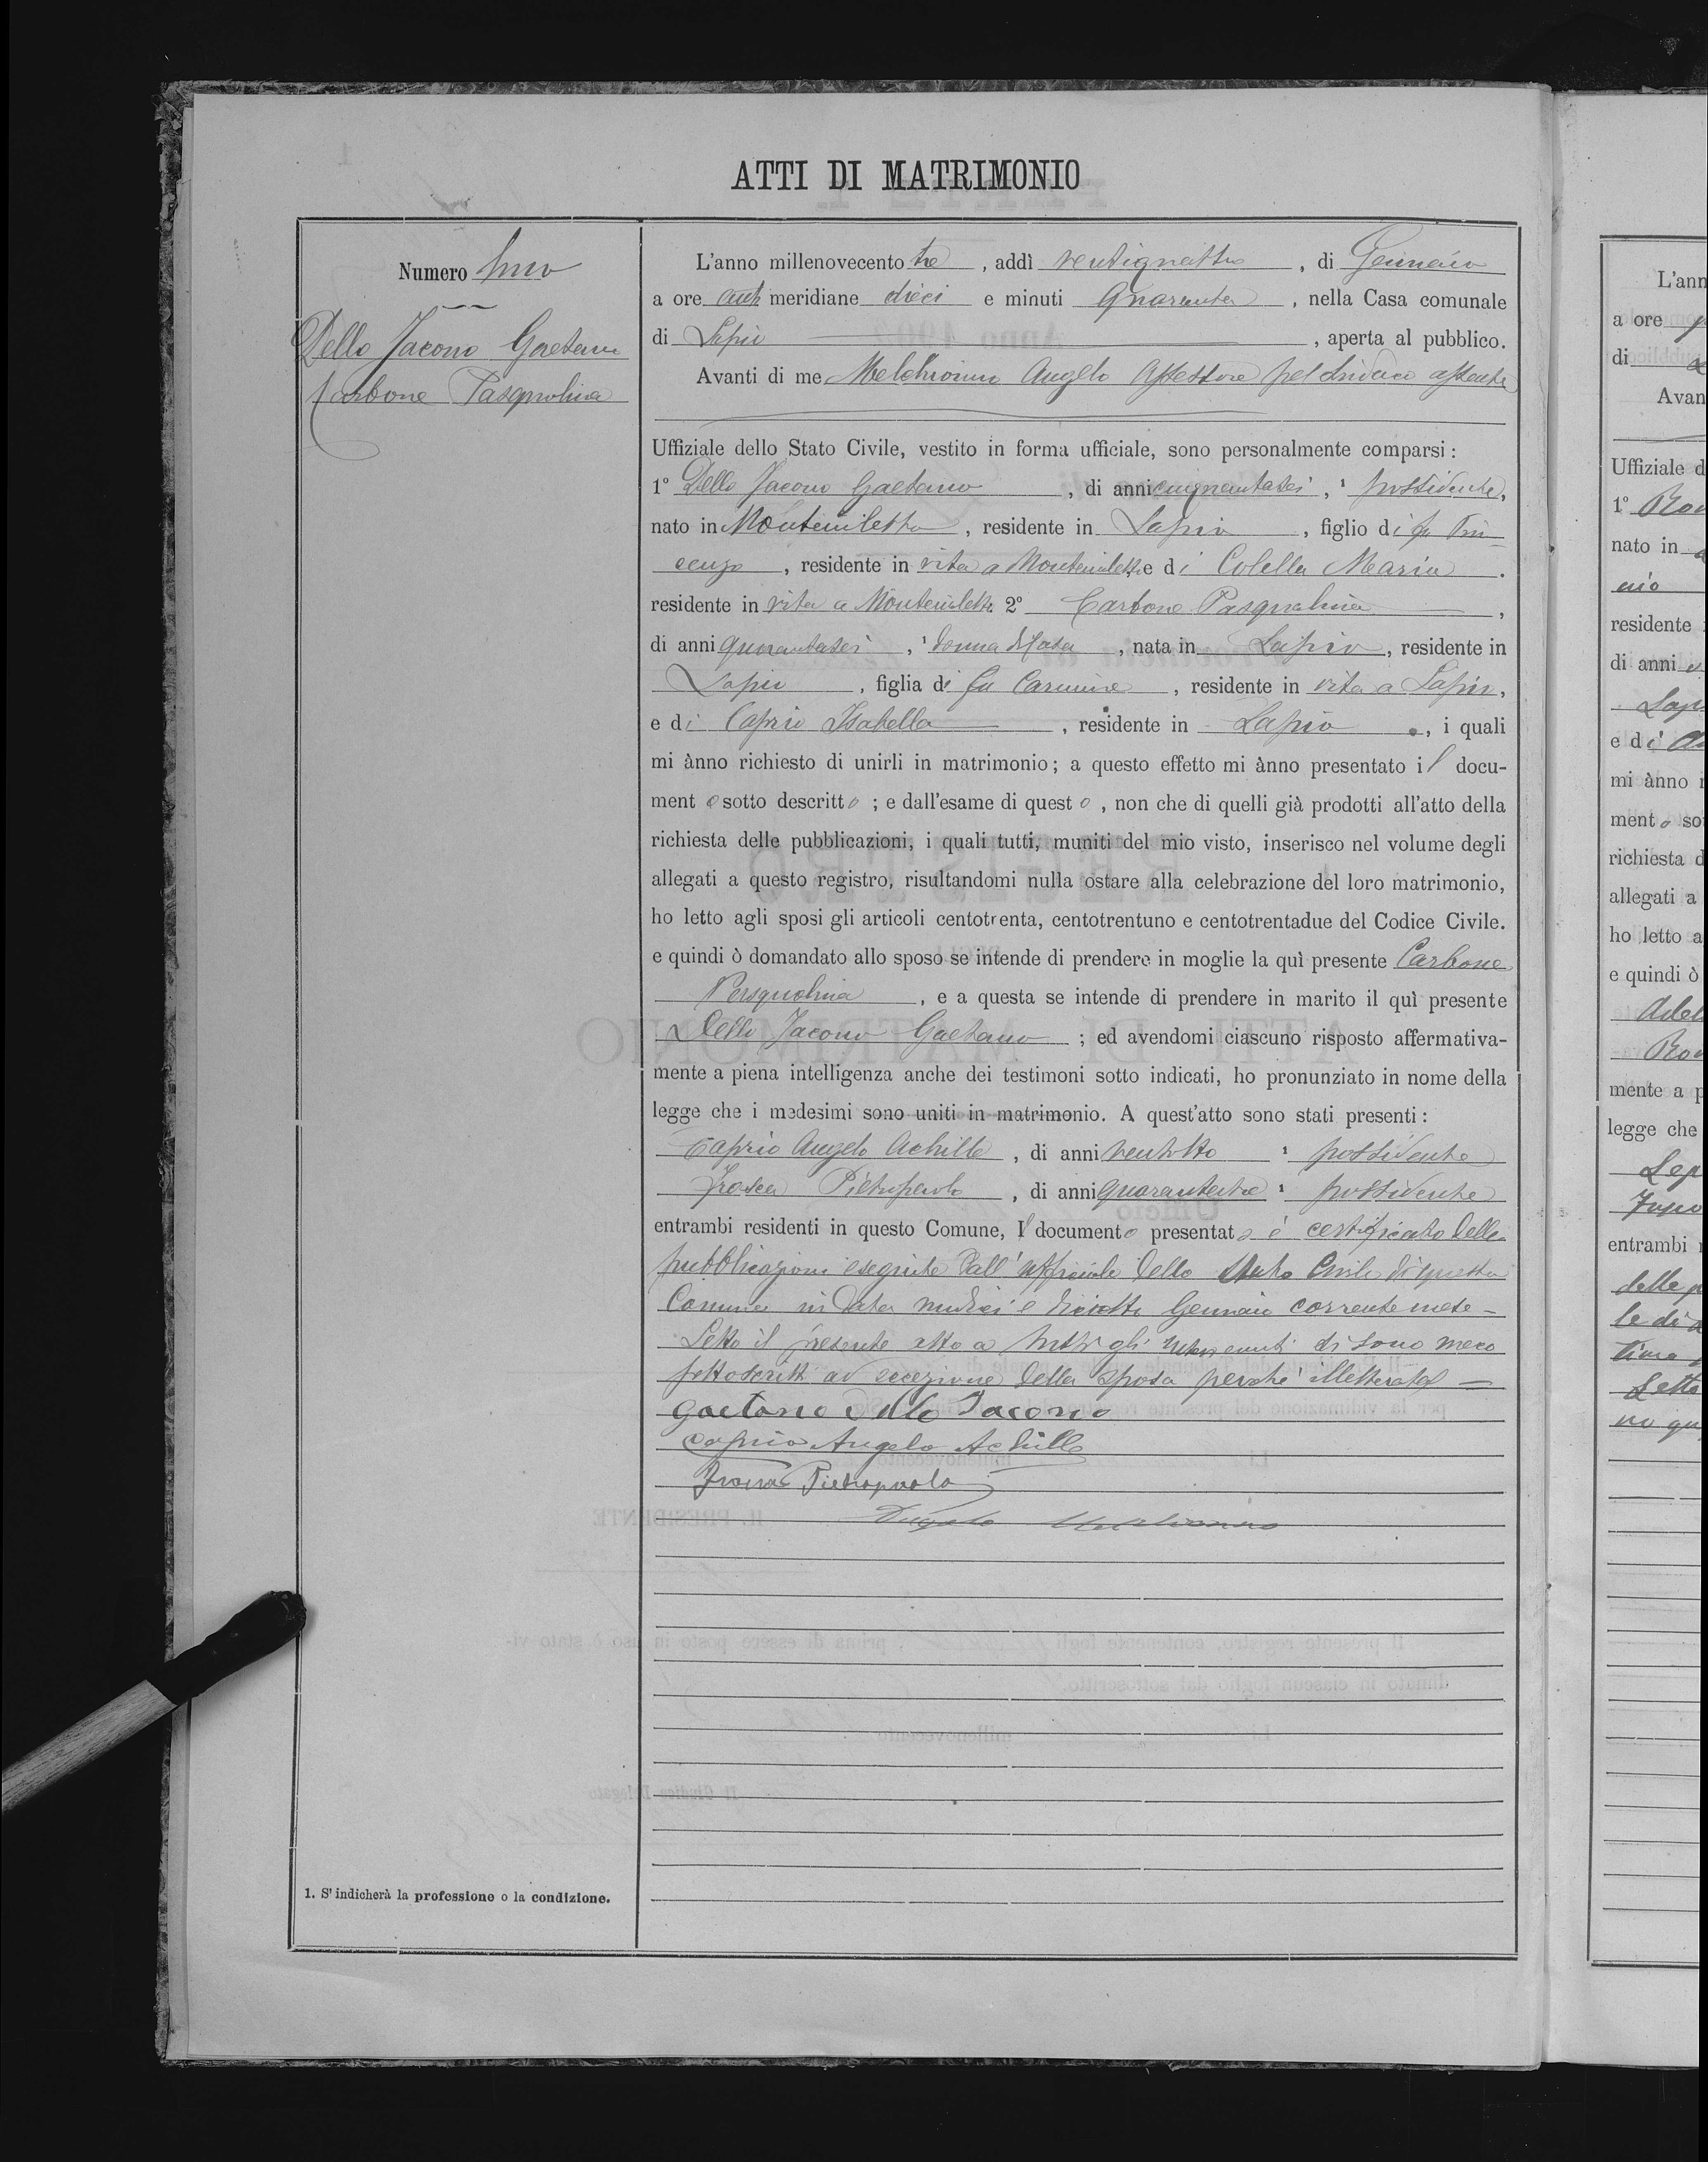 ATTI DI MATRIMONIO
Numero Uno
Dello Jacono Gaetano
Carbone Pasqualina
L'anno millenovecento tre, addì ventiquattro, di Gennaio
a ore anti meridiane dieci e minuti quaranta, nella Casa comunale
di Lapio, aperta al pubblico.
Avanti di me Melchionno Angelo Assessore pel Sindaco assente
Uffiziale dello Stato Civile, vestito in forma ufficiale, sono personalmente comparsi:
1° Dello Jacono Gaetano, di anni cinquantasei, 1 possidente,
nato in Montemiletto, residente in Lapio, figlio di fu Vin-
cenzo, residente in vita a Montemiletto e di Colella Maria.
residente in vita a Montemiletto 2° Carbone Pasqualina,
di anni quarantasei, 1 donna di casa, nata in Lapio, residente in
Lapio, figlia di fu Carmine, residente in vita a Lapio,
e di Caprio Isabella, residente in Lapio, i quali
mi ànno richiesto di unirli in matrimonio; a questo effetto mi ànno presentato il docu-
mento sotto descritto; e dall'esame di questo, non che di quelli già prodotti all'atto della
richiesta delle pubblicazioni, i quali tutti, muniti del mio visto, inserisco nel volume degli
allegati a questo registro, risultandomi nulla ostare alla celebrazione del loro matrimonio,
ho letto agli sposi gli articoli centotrenta, centotrentuno e centotrentadue del Codice Civile.
e quindi ò domandato allo sposo se intende di prendere in moglie la quì presente Carbone
Pasqualina, e a questa se intende di prendere in marito il quì presente
Dello Jacono Gaetano; ed avendomi ciascuno risposto affermativa-
mente a piena intelligenza anche dei testimoni sotto indicati, ho pronunziato in nome della
legge che i medesimi sono uniti in matrimonio. A quest'atto sono stati presenti:
Caprio Angelo Achille, di anni ventotto 1 possidente
Frosca Pietropaolo, di anni quarantatre 1 possidente
entrambi residenti in questo Comune, Il documento presentato è certificato delle
pubblicazioni eseguite dall'Ufficiale dello Stato Civile di questo
Comune in data undici e diciotto Gennaio corrente mese -
Letto il presente atto a tutti gli intervenuti si sono meco
sottoscritti ad eccezione della sposa perché illetterata -
Gaetano Dello Jacono
Caprio Angelo Achille
Pietropaolo
Angelo Melchionno
1. S'indicherà la professione o la condizione.
L'ann
a ore
di
Avan
Uffiziale d
1°
nato in
nio
residente
di anni
Lap
e di
mi ànno
mento so
richiesta d
allegati a
ho letto a
e quindi ò
Adel
mente a p
legge che
entrambi
delle p
le di
Letto